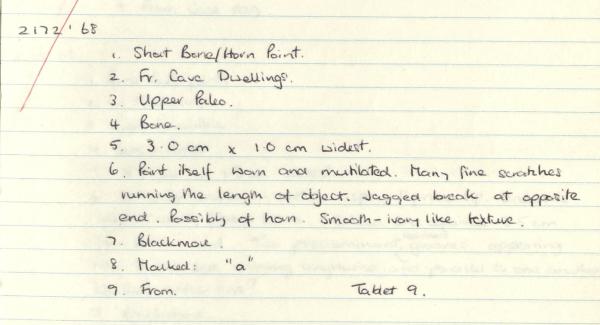 2172'68
1. Short Bone/Horn Point.
2. Fr. Cave Dwellings.
3. Upper Paleo.
4 Bone.
5. 3.0 cm x 1.0 cm widest.
6. Point itself worn and mutilated. Many fine scratches
running the length of object. Jagged break at opposite
end. Possibly of horn. Smooth-ivory like texture.
7. Blackmore.
8. Marked: "a"
9. From. Tablet 9.